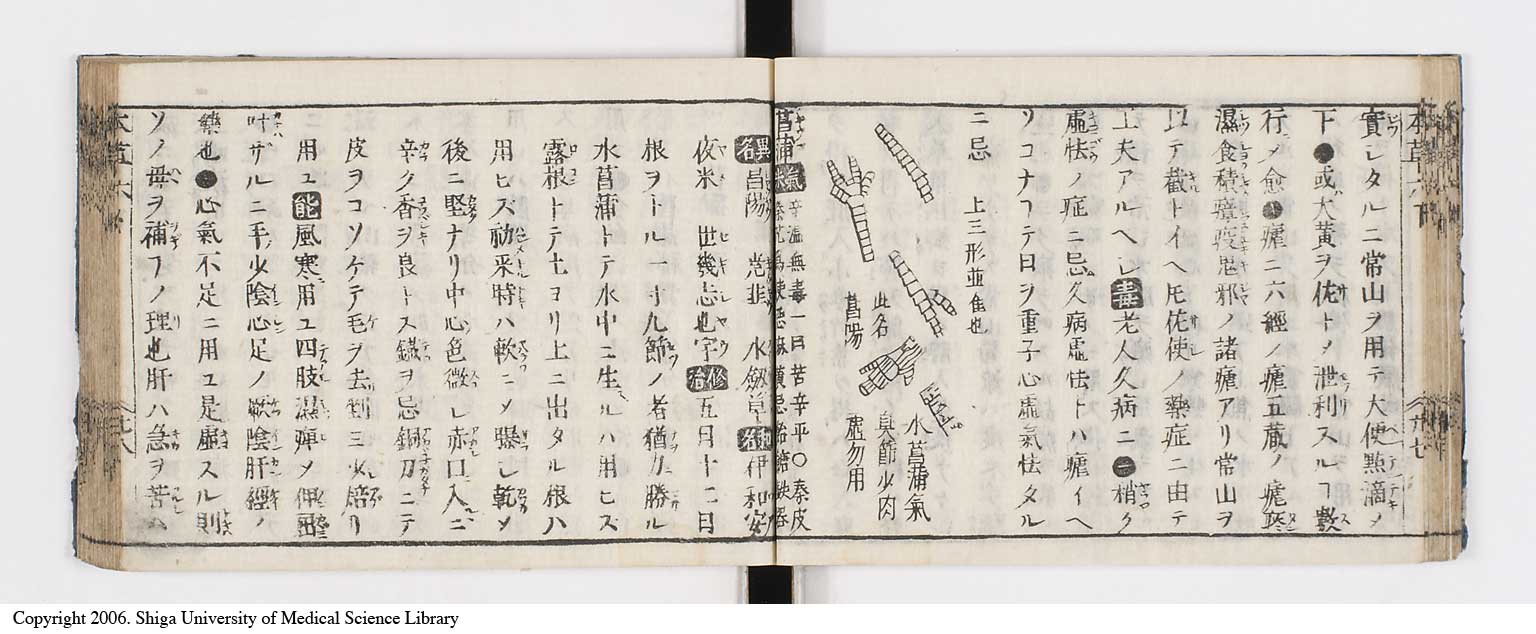 實シタルニ常山ヲ用テ大便點滴メ
下●或大黄ヲ佐トメ泄利スルコ數
行メ愈●瘧ニ六經ノ瘧五藏ノ瘧
濕食積瘴疫鬼邪ノ諸瘧アリ常山ヲ
以テ截トイヘ𪜈佐使ノ藥症ニ由テ
工夫アルヘシ毒老人久病ニ一稍ク
虚怯ノ症ニ忌久病虚怯トハ瘧イヘ
ソコナフテ日ヲ重子心虚氣怯タル
ニ忌
上三形並隹也
此名
菖陽
水菖蒲氣
臭節少肉
虚勿用
菖蒲氣辛温無毒一曰苦辛平〇秦皮
異名昌陽 尭韭 水劒草和名伊和安
夜米 世幾志也宇修治五月十二日
根ヲトル一寸九節ノ者猶力勝ル
水菖蒲トテ水中ニ生ルハ用ヒス
露根トテ土ヨリ上ニ出タル根ハ
用ヒス初采時ハ軟ニメ曝シ乾メ
後ニ堅ナリ中心色微シ赤口入ニ
辛ク香ヲ良トス鐵ヲ忌銅刀ニテ
皮ヲコソゲテ毛ヲ去到ニ火焙リ
用ユ能風寒用ユ四肢濕痺メ伸
叶ザルニ手少陰心足ノ厥陰肝經ノ
藥也●心氣不足ニ用ユ是虚スル則
ソノ母ヲ補フノ理也肝ハ急ヲ苦ム
Copyright 2006. Shiga University of Medical Science Library